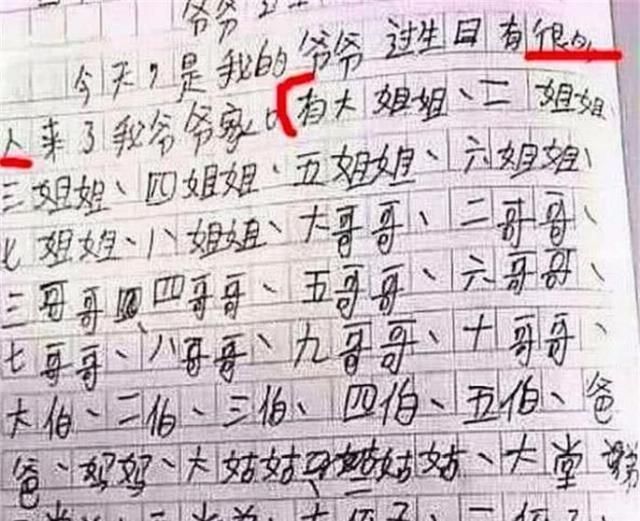 爷爷过生
今天,是我的爷爷过生日有很多
人来了我爷爷家,有大姐姐、二姐姐
三姐姐、四姐姐、五姐姐、六姐姐、
七姐姐、八姐姐、大哥哥、二哥哥、
三哥哥、四哥哥、五哥哥、六哥哥、
七哥哥、八哥哥、九哥哥、十哥哥、
大伯、二伯、三伯、四伯、五伯、爸
爸、妈妈、大姑姑、二姑姑、大堂